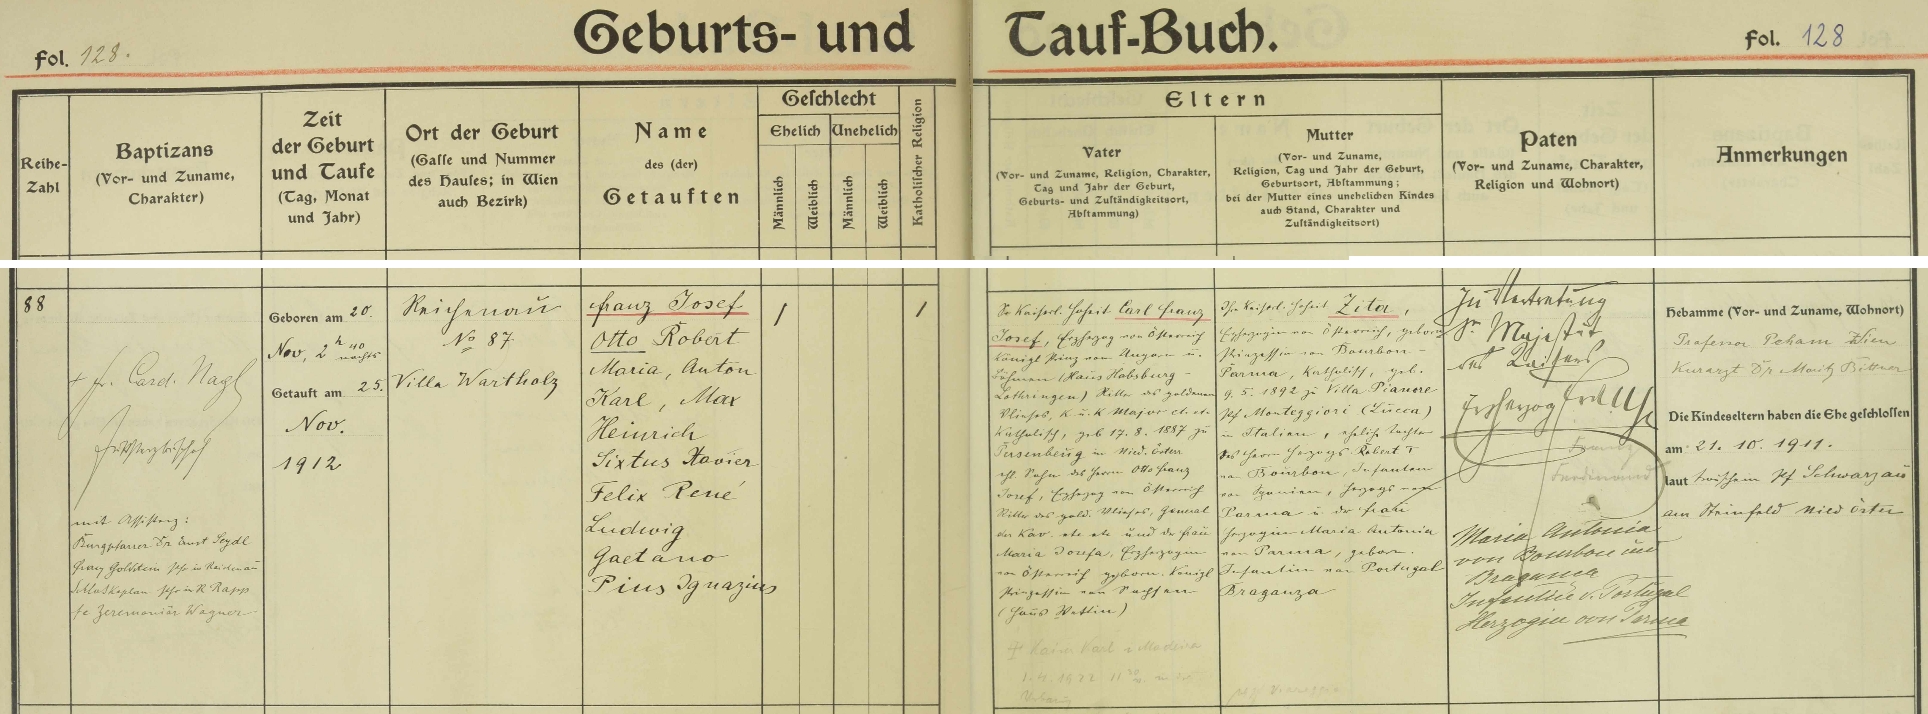 Geburts- und Tauf-Buch.
Fol. 128.
Fol. 128
Reihe-
Zahl
Baptizans
(Vor- und Zuname,
Charakter)
Zeit
der Geburt
und Taufe
(Tag, Monat
und Jahr)
Ort der Geburt
(Gasse und Nummer
des Hauses; in Wien
auch Bezirk)
Name
des (der)
Getauften
Geschlecht
Ehelich
Unehelich
Männlich
Weiblich
Männlich
Weiblich
Katholischer Religion
Eltern
Vater
(Vor- und Zuname, Religion, Charakter,
Tag und Jahr der Geburt,
Geburts- und Zuständigkeitsort,
Abstammung)
Mutter
(Vor- und Zuname,
Religion, Tag und Jahr der Geburt,
Geburtsort, Abstammung;
bei der Mutter eines unehelichen Kindes
auch Stand, Charakter und
Zuständigkeitsort)
Paten
(Vor- und Zuname, Charakter,
Religion und Wohnort)
Anmerkungen
88
+ Fr. Card. Nagl
Fürsterzbischof
mit Assistenz:
Burgpfarrer Dr. Ernst Seydl
Geboren am 20.
Nov, 2 h 40
nachts
Getauft am 25.
Nov.
1912
Reichenau
No 87
Villa Wartholz
Franz Josef
Otto Robert
Maria, Anton
Karl, Max
Heinrich
Sixtus Xavier
Felix René
Ludwig
Gaetano
Pius Ignazius
1
1
Se Kaiserl. Hoheit Carl Franz
Josef, Erzherzog von Österreich
Königl Prinz von Ungarn u.
Böhmen (Haus Habsburg-
Lothringen) Ritter des goldenen
Vlieses, K. u. K Major etc. etc.
Katholisch, geb 17. 8. 1887 zu
Persenbeug in Nied. Österr
ehl. Sohn des Herrn Otto Franz
Josef, Erzherzog von Österreich
Ritter des gold. Vlieses, General
der Kav. etc etc und der Frau
Maria Josefa, Erzherzogin
von Österreich geborn. Königl
Prinzessin von Sachsen
(Haus Wettin)
Kaiser Karl Madeira
1. 4. 1922
Ihre Kaiserl. Hoheit Zita,
Erzherzogin von Österreich, geborne
Prinzessin von Bourbon-
Parma, Katholisch, geb.
9. 5. 1892 zu Villa Pianore
Pf. Monteggiori (Lucca)
in Italien, ehelich Tochter
des Herrn Herzogs Robert I
von Bourbon, Infanten
von Spanien, Herzogs von
Parma u. der Frau
Herzogin Maria Antonia
von Parma, gebor.
Infantin von Portugal
Braganza
In Vertretung
Sr Majestät
des Kaisers
Erzherzog
Franz
Ferdinand
Maria Antonia
von Bourbon und
Braganza
Infantin v. Portugal
Herzogin von Parma
Hebamme (Vor- und Zuname, Wohnort)
Professor Peham Wien
Kurarzt Dr Moritz Bittner
Die Kindeseltern haben die Ehe geschlossen
am 21. 10. 1911.
laut Trauschein Pf Schwarzau
am Steinfeld Nied Österr